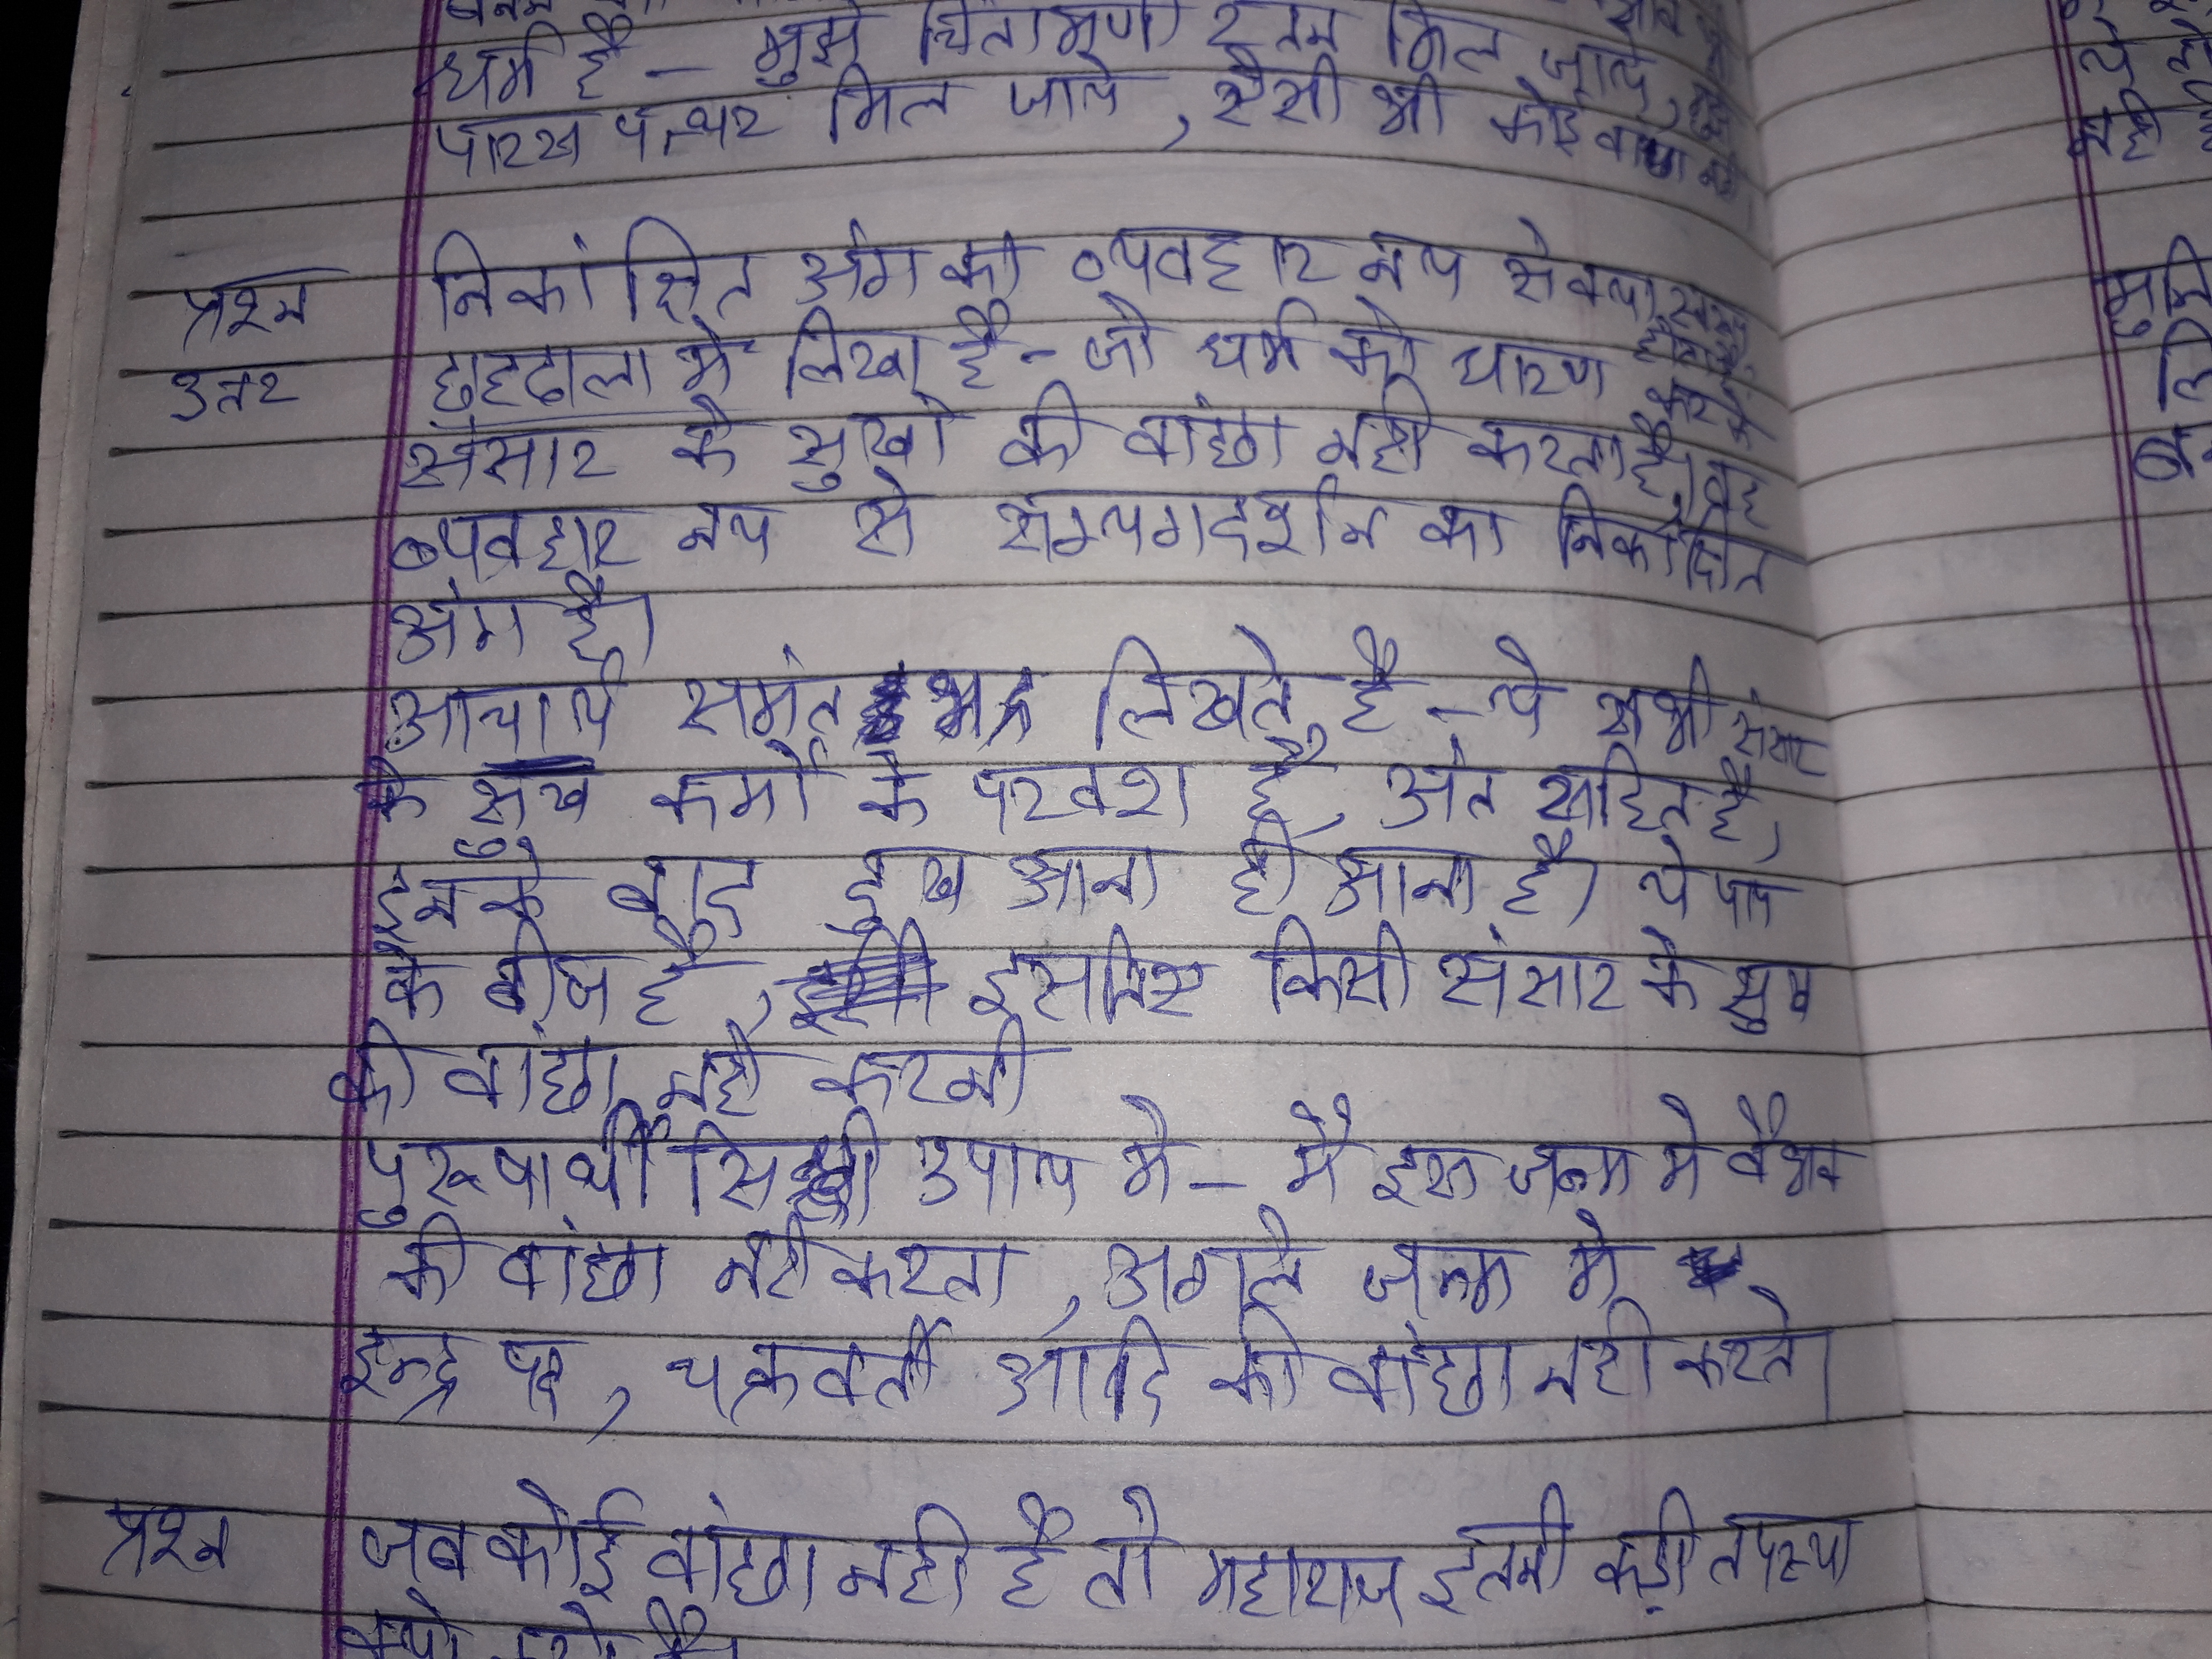 धर्म है - मुझे चिंतामणी रतन मिल जाये,
पारख पत्थर मिल जाये, ऐसी भी कोई वांछा नही
प्रश्न निकांक्षित अंग का व्यवहार नय से क्या
उतर छहढाला मे लिखा है - जो धर्म को धारण करके
संसार के सुखो की वांछा नही करता है, वह
व्यवहार नय से सम्यगदर्शन का निकांक्षित
अंग है।
आचार्य समंतभद्र लिखते है - ये सभी संसार
के सुख कर्मो के परवश है, अंत सहित है,
इनके बाद दुख आना ही आना है। ये पाप
के बीज है, इसलिए किसी संसार के सुख
की वांछा नही करनी
पुरूषार्थी सिद्धी उपाय मे - मै इस जन्म मे वैभव
की वांछा नही करता, अगले जन्म मे
इन्द्र पद, चक्रवर्ती आदि की वांछा नही करते।
प्रश्न जब कोई वांछा नही है तो महाराज इतनी कड़ी तपस्या
मुनि